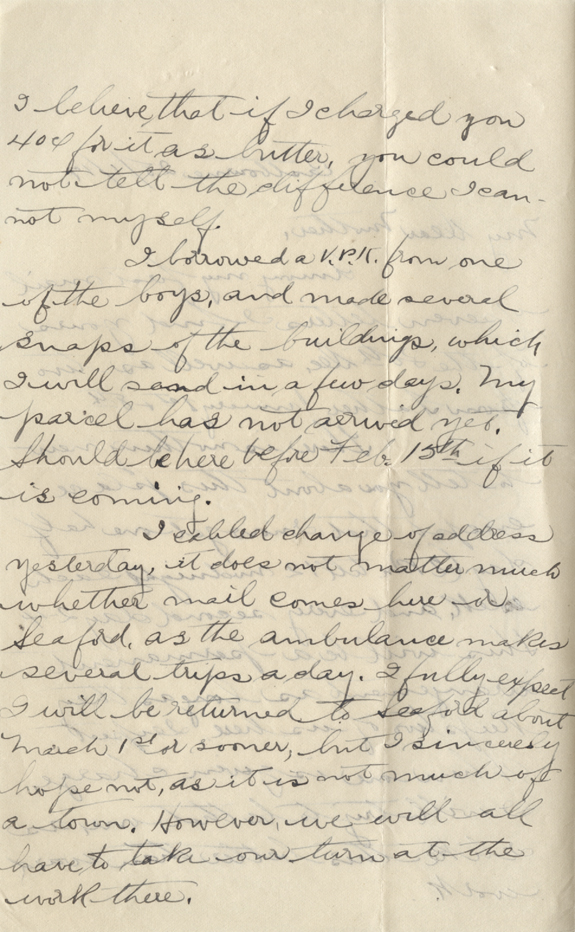 I believe that if I charged you
40¢ for it as butter, you could
not tell the difference I can-
not myself.
I borrowed a V.P.K. from one
of the boys, and made several
snaps of the buildings, which
I will send in a few days. My
parcel has not arrived yet.
Should be here before Feb. 15th if it
is coming.
I cabled change of address
yesterday, it does not matter much
whether mail comes here or
Seaford, as the ambulance makes
several trips a day. I fully expect
I will be returned to Seaford about
March 1st or sooner, but I sincerely
hope not, as it is not much of
a town. However, we will all
have to take our turn at the
work there.